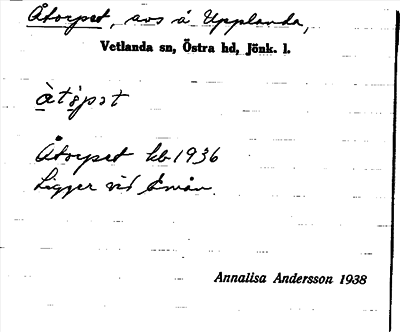 Åtorpet, avs å Upplanda,
Vetlanda sn, Östra hd, Jönk. l.
åtɔrpət
Åtorpet kb 1936
Ligger vid Emån.
Annalisa Andersson 1938